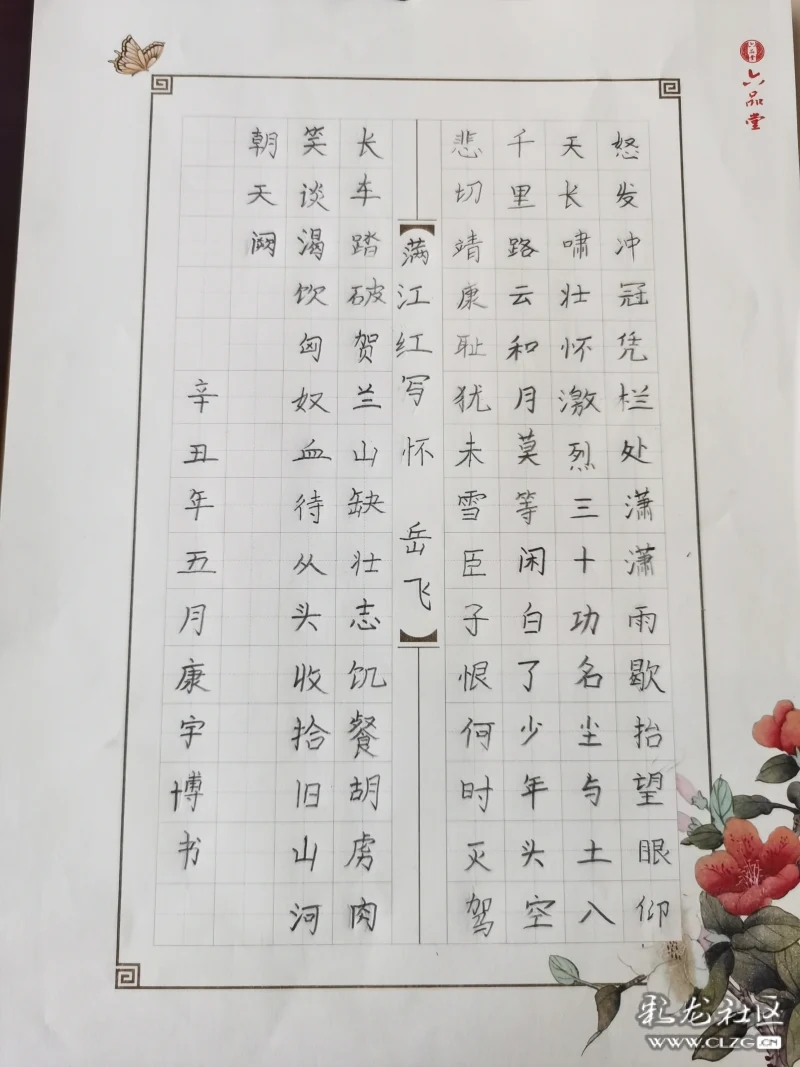 六品堂
怒发冲冠凭栏处潇潇雨歇抬望眼仰
天长啸壮怀激烈三十功名尘与土八
千里路云和月莫等闲白了少年头空
悲切靖康耻犹未雪臣子恨何时灭驾
满江红写怀 岳飞
长车踏破贺兰山缺壮志饥餐胡虏肉
笑谈渴饮匈奴血待从头收拾旧山河
朝天阙
辛丑年五月康宇博书
彩龙社区
WWW.CLZG.CN